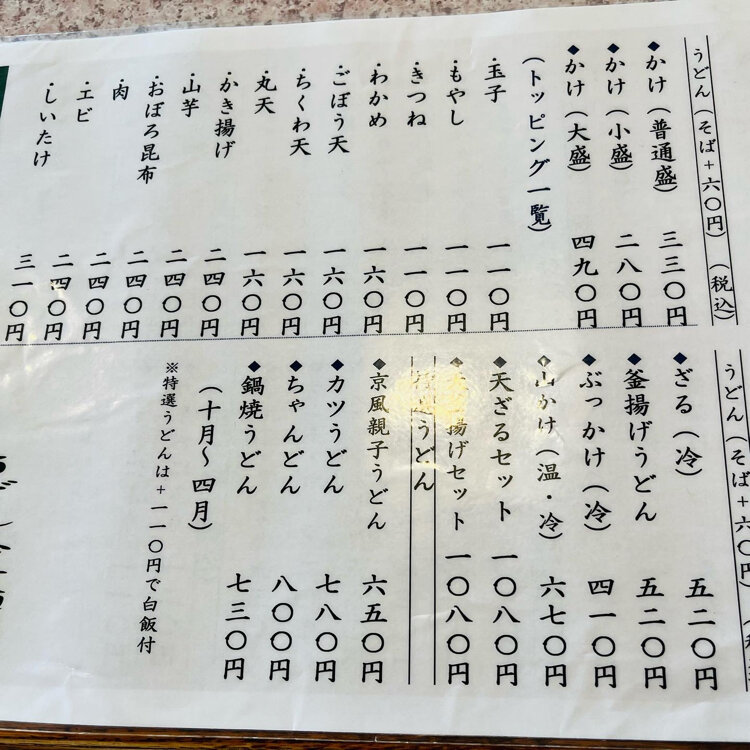 うどん(そば+六〇円) (税込)
◆かけ(普通盛) 三三〇円
◆かけ(小盛) 二八〇円
◆かけ(大盛) 四九〇円
(トッピング一覧)
・玉子 一一〇円
・もやし 一一〇円
・きつね 一一〇円
・わかめ 一六〇円
・ごぼう天 一六〇円
・ちくわ天 一六〇円
・丸天 一六〇円
・かき揚げ 二四〇円
・山芋 二四〇円
・おぼろ昆布 二四〇円
・肉 二四〇円
・エビ 二四〇円
・しいたけ 三一〇円
うどん(そば+六〇円)
◆ざる(冷) 五二〇円
◆釜揚げうどん 五二〇円
◆ぶっかけ(冷) 四一〇円
◆山かけ(温・冷) 六七〇円
◆天ざるセット 一〇八〇円
◆揚げセット 一〇八〇円
うどん
◆京風親子うどん 六五〇円
◆カツうどん 七八〇円
◆ちゃんどん 八〇〇円
◆鍋焼うどん 七三〇円
(十月～四月)
※特選うどんは+一一〇円で白飯付